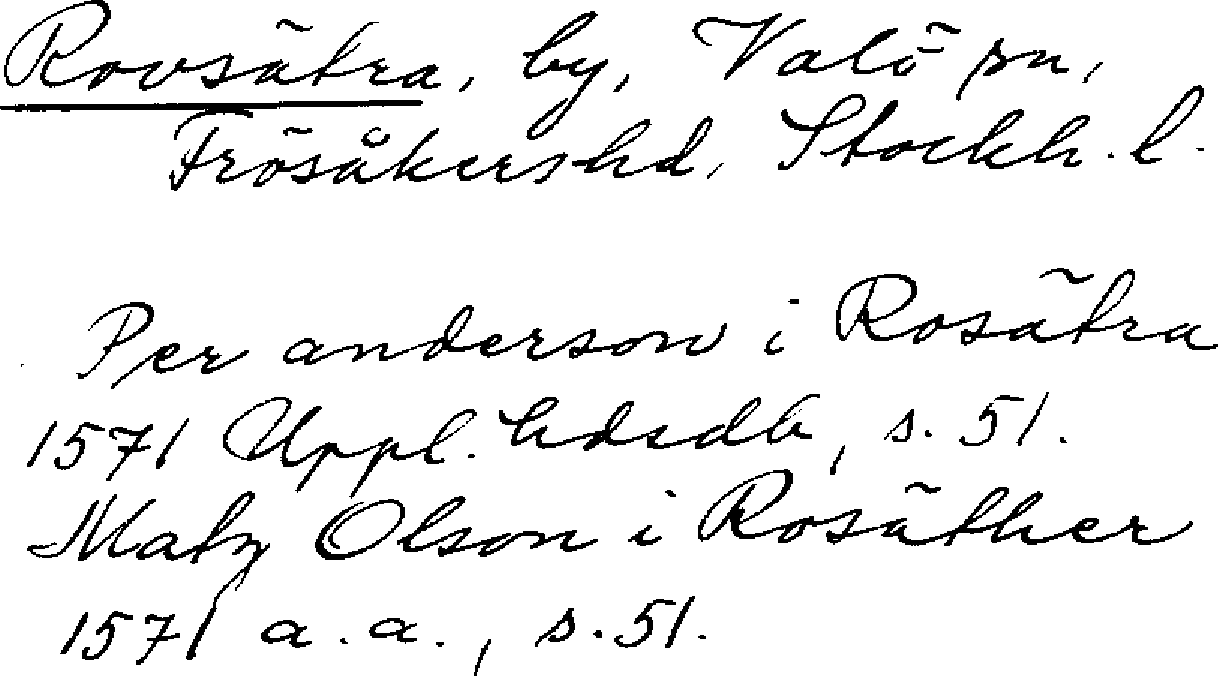 Rovsätra, by, Valö sn,
Frösåkershd, Stockh. l.
Per anderson i Rosätra
1571 Uppl. hdsdb, s. 51.
Matz Olson i Rosäther
1571 a.a., s. 51.